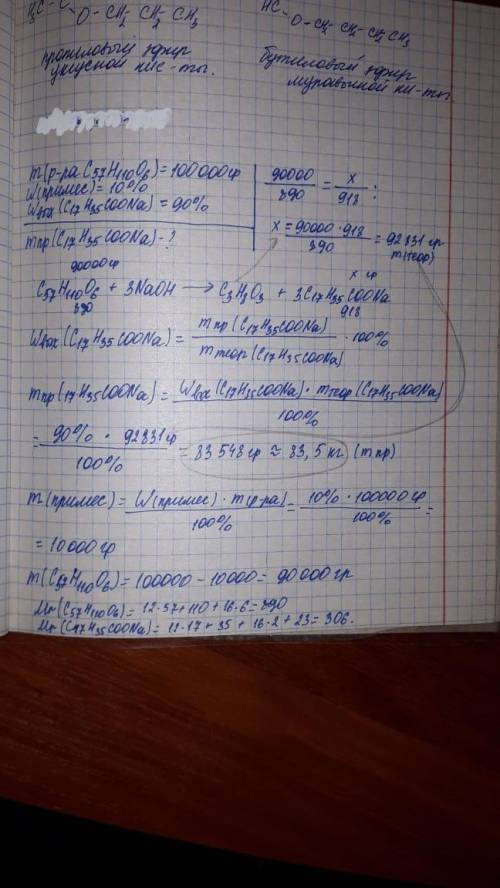 H₃C - O - CH₂ - CH₂ - CH₃
пропиловый эфир
уксусной кис-ты.
HC - O - CH₂ - CH₂ - CH₂ CH₃
бутиловый эфир
муравьиной ки-ты
m(р-ра C₅₇H₁₁₀O₆) = 100000 гр
W(примес) = 10%
Wвых(C₁₇H₃₅COONa) = 90%
mпр(C₁₇H₃₅COONa) - ?
90000/890 = x/918 ;
x = 90000 · 918/890 = 92831 гр
m(теор)
90000 гр
x гр
C₅₇H₁₁₀O₆ + 3NaOH → C₃H₅O₃ + 3C₁₇H₃₅COONa
890
918
Wвых(C₁₇H₃₅COONa) = mпр(C₁₇H₃₅COONa)/mтеор(C₁₇H₃₅COONa) · 100%
mпр(17H₃₅COONa) = Wвых(C₁₇H₃₅COONa) · mтеор(C₁₇H₃₅COONa)/100%
= 90% · 92831 гр/100% = 83 548 гр ≈ 83,5 кг. (mпр)
m(примес) = W(примес) · m(р-ра)/100% = 10% · 100000 гр/100% =
= 10000 гр
m(C₅₇H₁₁₀O₆) = 100000 - 10000 = 90000 гр
Mr(C₅₇H₁₁₀O₆) = 12·57 + 110 + 16·6 = 890
Mr(C₁₇H₃₅COONa) = 12·17 + 35 + 16·2 + 23 = 306.